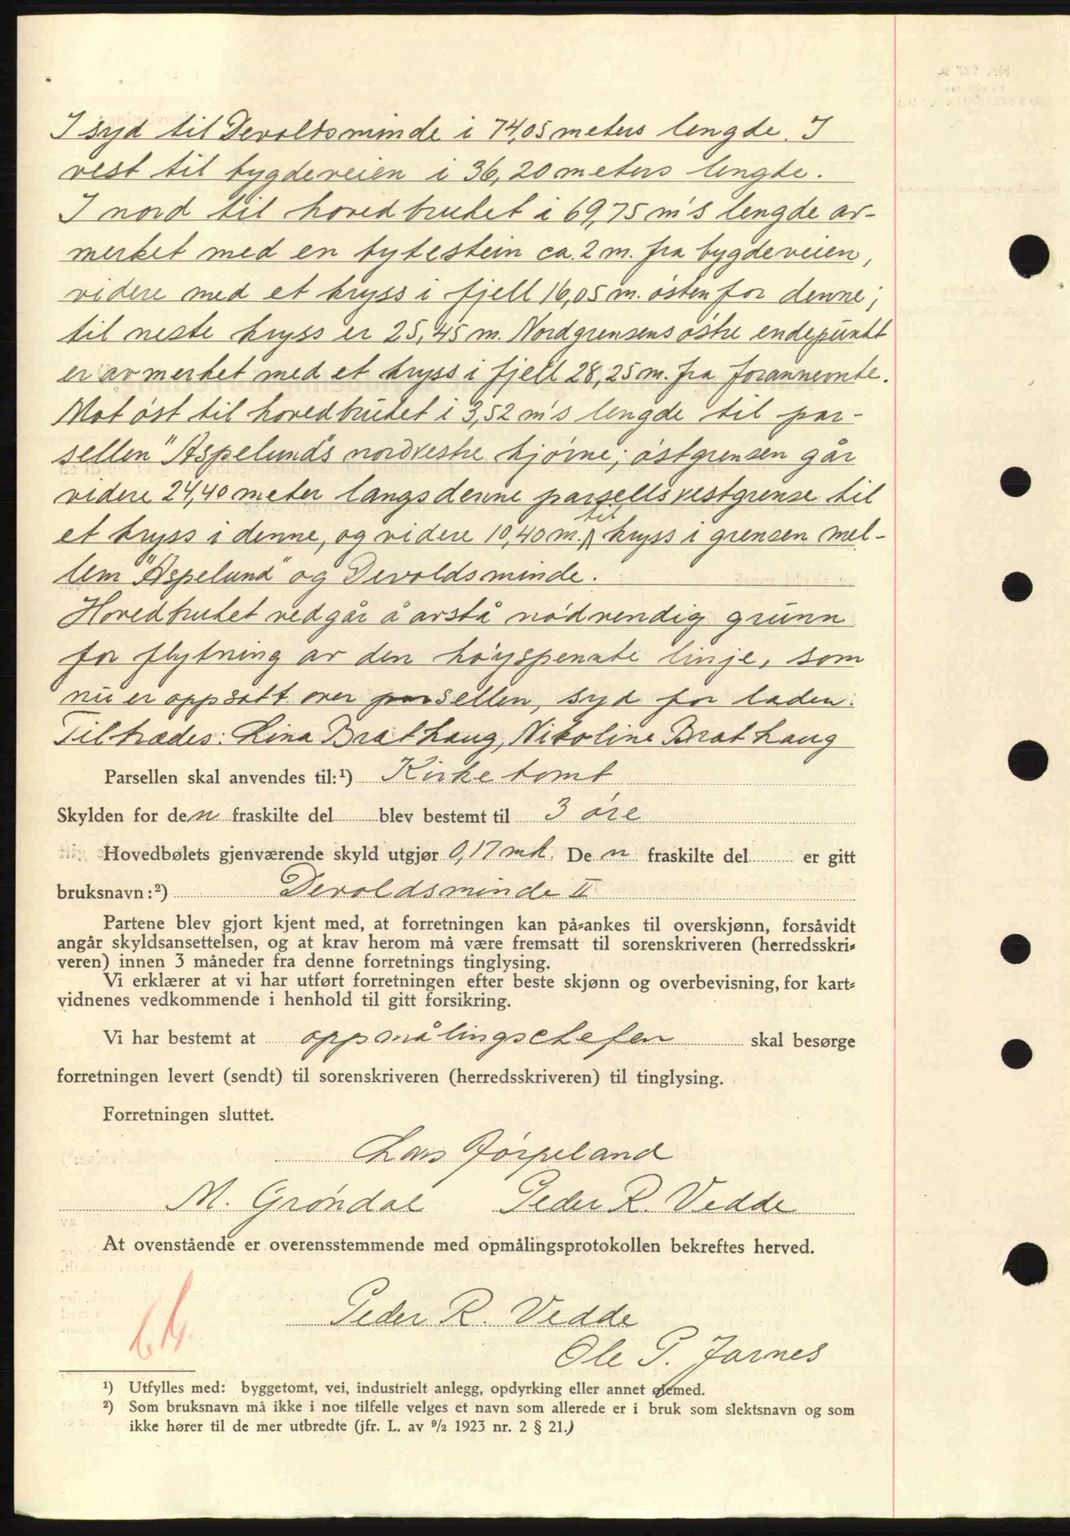 I syd til Devoldsminde i 74,05 meters lengde. I
vest til bygdeveien i 36,20 meters lengde.
I nord til hovedbruket i 69,75 m's lengde av-
merket med en bytestein ca. 2 m. fra bygdeveien,
videre med et kryss i fjell 16,05 m. østen for denne;
til neste kryss er 25,45 m. Nordgrensens østre endepunkt
er avmerket med et kryss i fjell 28,25 m. fra forannevnte.
Mot øst til hovedbruket i 3,52 m's lengde til par-
sellen "Aspelund"s nordvestre hjørne; østgrensen går
videre 24,40 meter langs denne parsells vestgrense til
et kryss i denne, og videre 10,40 m. til kryss i grensen mel-
lem "Aspelund" og Devoldsminde.
Hovedbruket vedgår å avstå nødvendig grunn
for flytning av den høyspente linje, som
nu er oppsatt over parsellen, syd for laden.
Tiltrædes: Lina Brathaug, Nikoline Brathaug
Parsellen skal anvendes til:¹) Kirketomt
Skylden for den fraskilte del blev bestemt til 3 øre
Hovedbølets gjenværende skyld utgjør 0,17 mk. Den fraskilte del er gitt
bruksnavn:²) Devoldsminde II
Partene blev gjort kjent med, at forretningen kan på-ankes til overskjønn, forsåvidt
angår skyldsansettelsen, og at krav herom må være fremsatt til sorenskriveren (herredsskri-
veren) innen 3 måneder fra denne forretnings tinglysing.
Vi erklærer at vi har utført forretningen efter beste skjønn og overbevisning, for kart-
vidnenes vedkommende i henhold til gitt forsikring.
Vi har bestemt at oppmålingschefen skal besørge
forretningen levert (sendt) til sorenskriveren (herredsskriveren) til tinglysing.
Forretningen sluttet.
Lars Jørpeland
M. Grøndal Peder R. Vedde
At ovenstående er overensstemmende med opmålingsprotokollen bekreftes herved.
Peder R. Vedde
Ole P. Jarnes
¹) Utfylles med: byggetomt, vei, industrielt anlegg, opdyrking eller annet øiemed.
²) Som bruksnavn må ikke i noe tilfelle velges et navn som allerede er i bruk som slektsnavn og som
ikke hører til de mer utbredte (jfr. L. av 9/2 1923 nr. 2 § 21.)